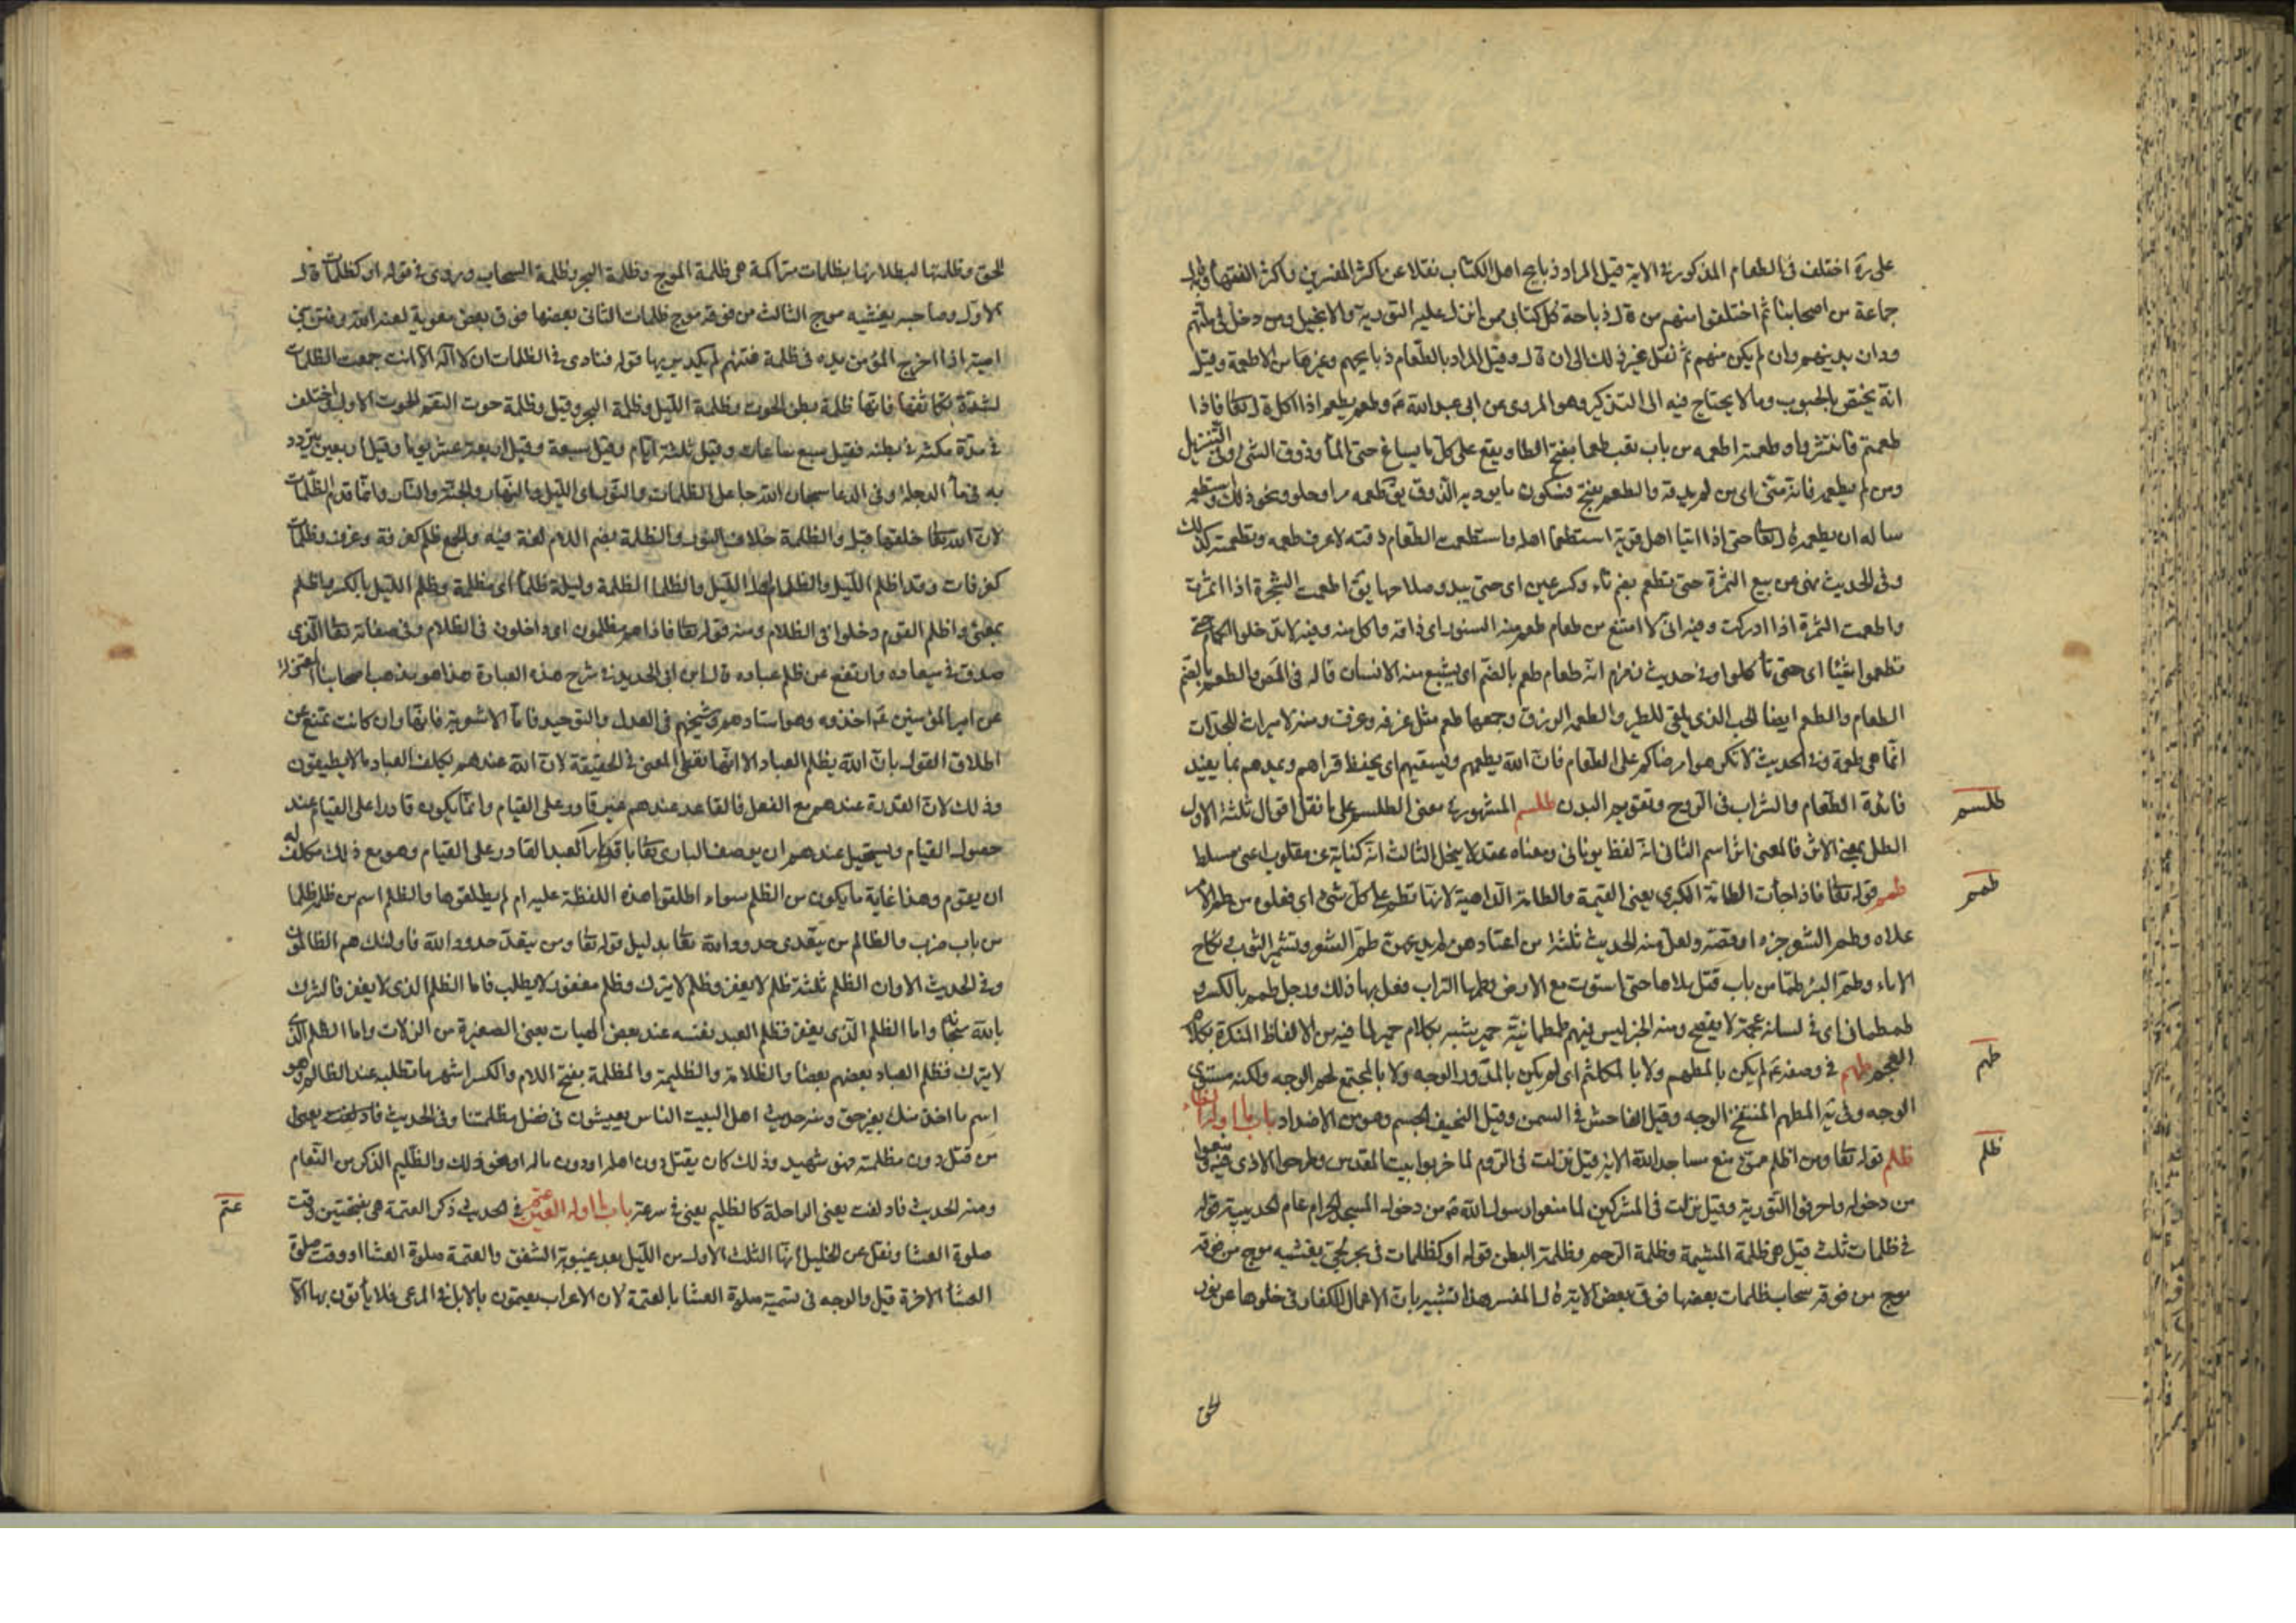 على ره اختلف في الطعام المذكور في الاية قيل المراد ذبايح اهل الكتاب نقلا عن اكثر المفسرين واكثر الفقها وبه قال
جماعة من اصحابنا ثم اختلفوا منهم من قال ذباحة كل كتابى ممن انزل عليه التورية والانجيل ومن دخل في ملتهم
ودان بدينهم وان لم يكن منهم ثم نقل غير ذلك الى ان قال وقيل المراد بالطعام ذبايحهم وغيرها من الاطعمة وقيل
انه يختص بالحبوب وما لا يحتاج فيه الى التذكير وهو المروى عن ابى عبد الله ع وطعم يطعم اذا اكل قال تعا فاذا
طعمتم فانتشروا وطعمته اطعمه من باب تعب طعما بفتح الطاء ويقع على كل ما يساغ حتى الماء وذوق الشئ وفي التنزيل
ومن لم يطعمه فانه منى اى من لم يذقه والطعم بفتح وسكون ما يوديه الذوق يق طعمه مر او حلو ونحو ذلك واستطعمه
ساله ان يطعمه قال تعا حتى اذا اتيا اهل قرية استطعما اهلها واستطعمت الطعام ذقته لاعرف طعمه وتطعمته كذلك
وفي الحديث نهى عن بيع الثمرة حتى تطعم بضم تاء وكسر عين اى حتى يبدو صلاحها يق اطعمت الشجرة اذا اثمرت
واطعمت الثمرة اذا ادركت وفيه انى لا امتنع من طعام طعم منه السنور اى ذاقه واكل منه وفيه لا تدخلوا الحمام حتى
تطعموا شيئا اى حتى تأكلوا وفي حديث زمزم انه طعام طعم بالضم اى يشبع منه الانسان قاله في المص والطعم بالضم
الطعام والطعم ايضا الحب الذى يلقى للطير والطعمه الرزق وجمعها طعم مثل غرفه وغرف ومنه لا ميراث للجدات
انما هى طعمة وفي الحديث لا تكرهوا مرضاكم على الطعام فان الله يطعمهم ويسقيهم اى يحفظ قواهم ويمدهم بما يفيد
فائدة الطعام والشراب في الروح وتقويم البدن طلسم المشهور في معنى الطلسم على ما نقل اقوال ثلثة الاول
الطل بمعنى الاثر فالمعنى اثر اسم الثانى انه لفظ يونانى ومعناه عقد لا ينحل الثالث انه كناية عن مقلوب اعنى مسلط
طمم قوله تعا فاذا جاءت الطامة الكبرى يعنى القيمة والطامة الداهية لانها تطم على كل شئ اى تعلوه من طم الامر
علاه وطم الشعر جزه او قصه ولعل منه الحديث ثلثة من اعتادهن لم يدعهن طم الشعر وتشمير الثوب ونكاح
الاماء وطم البئر طما من باب قتل ملاها حتى استوت مع الارض وطمها التراب فعل بها ذلك ورجل طمطم بالكسر و
طمطمانى اى في لسانه عجمة لا يفصح ومنه الخبر ليس فيهم طمطمانية حمير يشبه بكلام حمير لما فيه من الالفاظ المنكرة بكلام
العجم طهم في وصفه ع لم يكن بالمطهم ولا بالمكلثم اى لم يكن بالمدور الوجه ولا بالمجتمع لحم الوجه ولكنه مستوى
الوجه وفي يه المطهم المنتفخ الوجه وقيل الفاحش في السمن وقيل النحيف الجسم وهو من الاضداد باب ما اوله الظاء
ظلم قوله تعا ومن اظلم ممن منع مساجد الله الاية قيل نزلت في الروم لما خربوا بيت المقدس وطرحوا الاذى فيه ومنعوا
من دخوله واحرقوا التورية وقيل نزلت في المشركين لما منعوا رسول الله ص من دخول المسجد الحرام عام الحديبية قوله
في ظلمات ثلث قيل هى ظلمة المشيمة وظلمة الرحم وظلمة البطن قوله او كظلمات في بحر لجى يغشيه موج من فوقه
موج من فوقه سحاب ظلمات بعضها فوق بعض الاية قال المفسر هذا تشبيه بان الاعمال للكفار في خلوها عن نور
الحق
طلسم
طمم
طهم
ظلم
الحق وظلمتها لبطلانها بظلمات متراكمة هى ظلمة الموج وظلمة البحر وظلمة السحاب وروى في قوله او كظلمات قال
الاول وصاحبه يغشيه موج الثالث من فوقه موج ظلمات الثانى بعضها فوق بعض معوية لعنه الله وفتن بنى
امية اذا اخرج المؤمن يده في ظلمة فتنهم لم يكد يريها قوله فنادى في الظلمات ان لا اله الا انت جمعت الظلمات
لشدة تكاثفها فانها ظلمة بطن الحوت وظلمة الليل وظلمة البحر وقيل وظلمة حوت التقم الحوت الاول واختلف
في مدة مكثه في بطنه فقيل سبع ساعات وقيل ثلثة ايام وقيل سبعة وقيل اربعة عشر يوما وقيل اربعين يتردد
به في ماء الدجلة وفي الدعا سبحان الله جاعل الظلمات والنور اى الليل والنهار والجنة والنار وانما قدم الظلمات
لان الله تعا خلقها قبل والظلمة خلاف النور والظلمة بضم اللام لغة فيه والجمع ظلم كغرفة وغرف وظلمات
كغرفات وقد اظلم الليل والظلام اول الليل والظلماء الظلمة وليلة ظلماء اى مظلمة وظلم الليل بالكسر واظلم
بمعنى واظلم القوم دخلوا في الظلام ومنه قوله تعا فاذا هم مظلمون اى داخلون في الظلام وفي صفاته تعا الذى
صدق في ميعاده وارتفع عن ظلم عباده قال ابن ابى الحديد في شرح هذه العبارة هذا هو مذهب اصحابنا المعتزلة
عن امير المؤمنين ع اخذوه وهو استادهم وشيخهم في العدل والتوحيد فاما الاشعرية فانها وان كانت تمتنع عن
اطلاق القول بان الله يظلم العباد الا انها تعطى المعنى في الحقيقة لان الله عندهم يكلف العباد ما لا يطيقون
وذلك لان القدرة عندهم مع الفعل فالقاعد عندهم غير قادر على القيام وانما يكون قادرا على القيام عند
حصول القيام ويستحيل عندهم ان يوصف البارى تعا باقدار العبد القادر على القيام وهو مع ذلك مكلف له
ان يقوم وهذا غاية ما يكون من الظلم سواء اطلقوا هذه اللفظة عليه ام لم يطلقوها والظلم اسم من ظلم ظلما
من باب ضرب والظالم من يتعدى حدود الله تعا بدليل قوله تعا ومن يتعد حدود الله فاولئك هم الظالمون
وفي الحديث الا وان الظلم ثلثة ظلم لا يغفر وظلم لا يترك وظلم مغفور لا يطلب فاما الظلم الذى لا يغفر فالشرك
بالله سبحانه واما الظلم الذى يغفر فظلم العبد نفسه عند بعض الهيات يعنى الصغيرة من الزلات واما الظلم الذى
لا يترك فظلم العباد بعضهم بعضا والظلامة والظليمة والمظلمة بفتح اللام والكسر اشهر ما تطلبه عند الظالم وهو
اسم ما اخذ منك بغير حق ومنه حديث اهل البيت الناس يعيشون في فضل مظلمتنا وفي الحديث
من قتل دون مظلمته فهو شهيد وذلك كان يقتل دون اهله او دون ماله او نحو ذلك والظليم الذكر من النعام
ومنه الحديث فادلفت يعنى الراحلة كالظليم يعنى في سرعته باب ما اوله العين عتم في الحديث ذكر العتمة هى بفتحتين وقت
صلوة العشا ونقل عن الخليل انها الثلث الاول من الليل بعد غيبوبة الشفق والعتمة صلوة العشا او وقت صلوة
العشاء الاخرة قيل والوجه في تسمية صلوة العشا بالعتمة لان الاعراب يعتمون بالابل في المرعى فلا يأتون بها الا
عتم